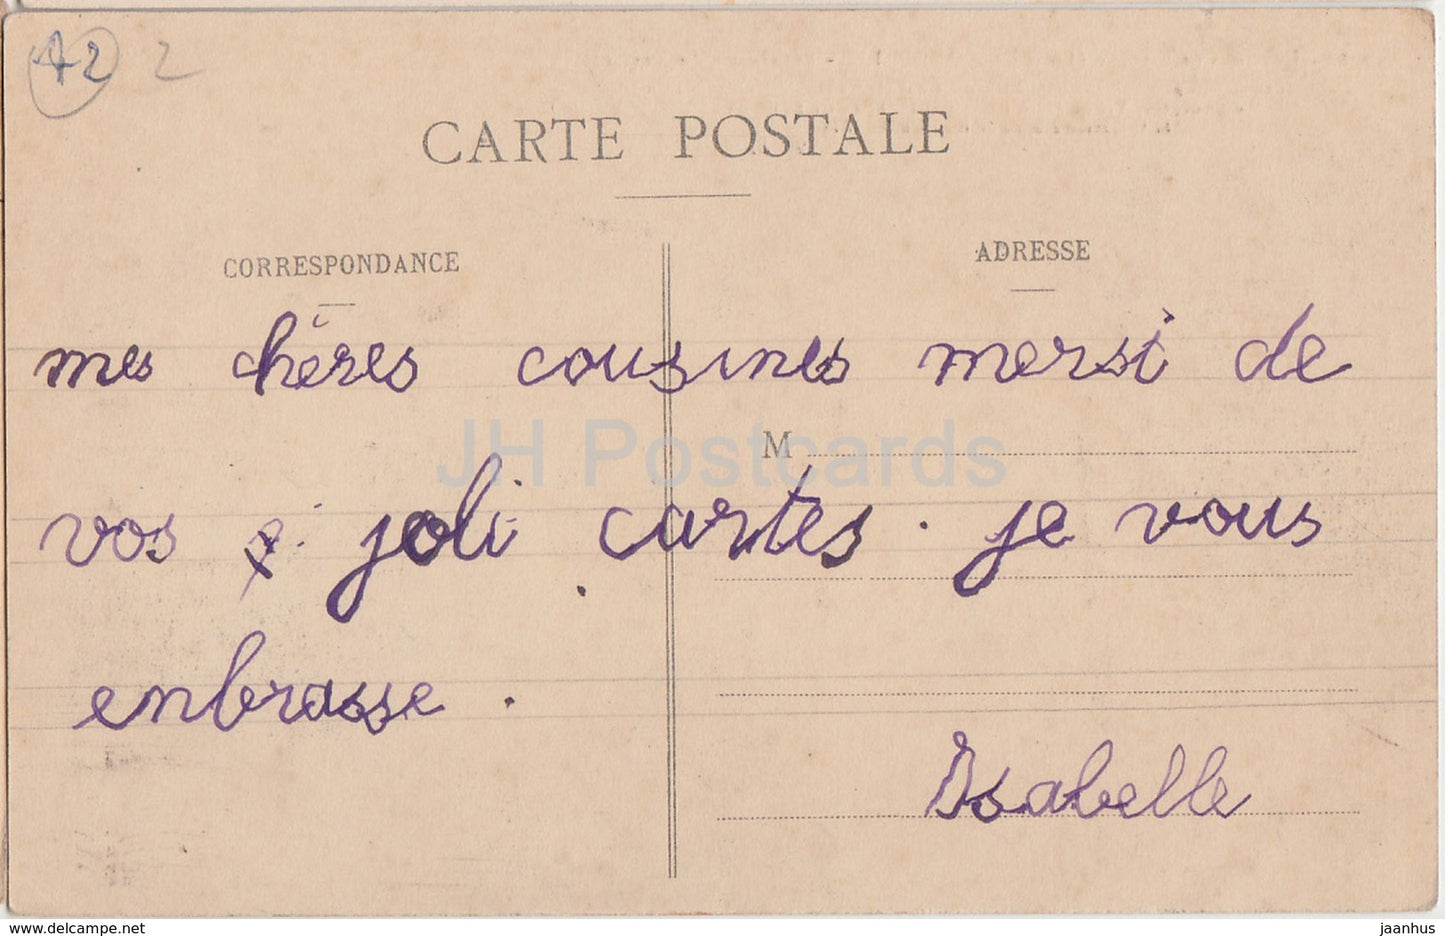 42 2
CARTE POSTALE
CORRESPONDANCE
ADRESSE
mes chères cousines mersi de
M
JH Postcards
vos joli cartes. je vous
enbrasse.
Isabelle
www.delcampe.net
jaanhus